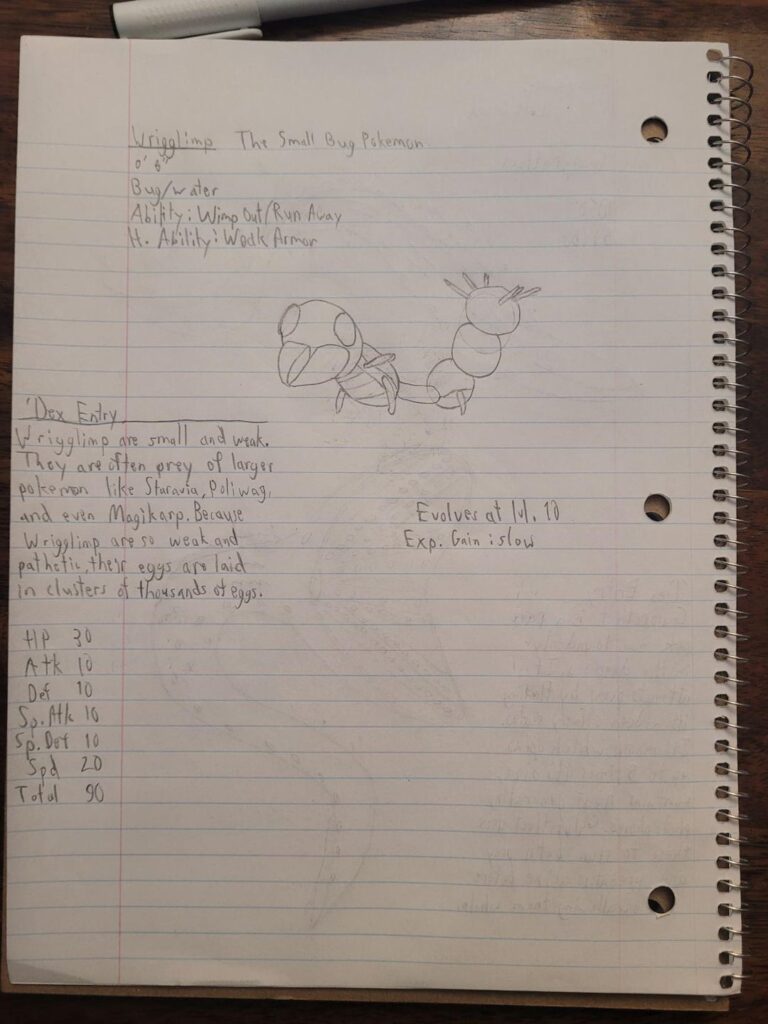 Wrigglimp The Small Bug Pokemon
0' 6"
Bug/water
Ability: Wimp Out/Run Away
H. Ability: Weak Armor
'Dex Entry
Wrigglimp are small and weak.
They are often prey of larger
pokemon like Staravia, Poliwag,
and even Magikarp. Because
Wrigglimp are so weak and
pathetic, their eggs are laid
in clusters of thousands of eggs.
Evolves at lvl. 10
Exp. Gain: slow
HP 30
Atk 10
Def 10
Sp. Atk 10
Sp. Def 10
Spd 20
Total 90